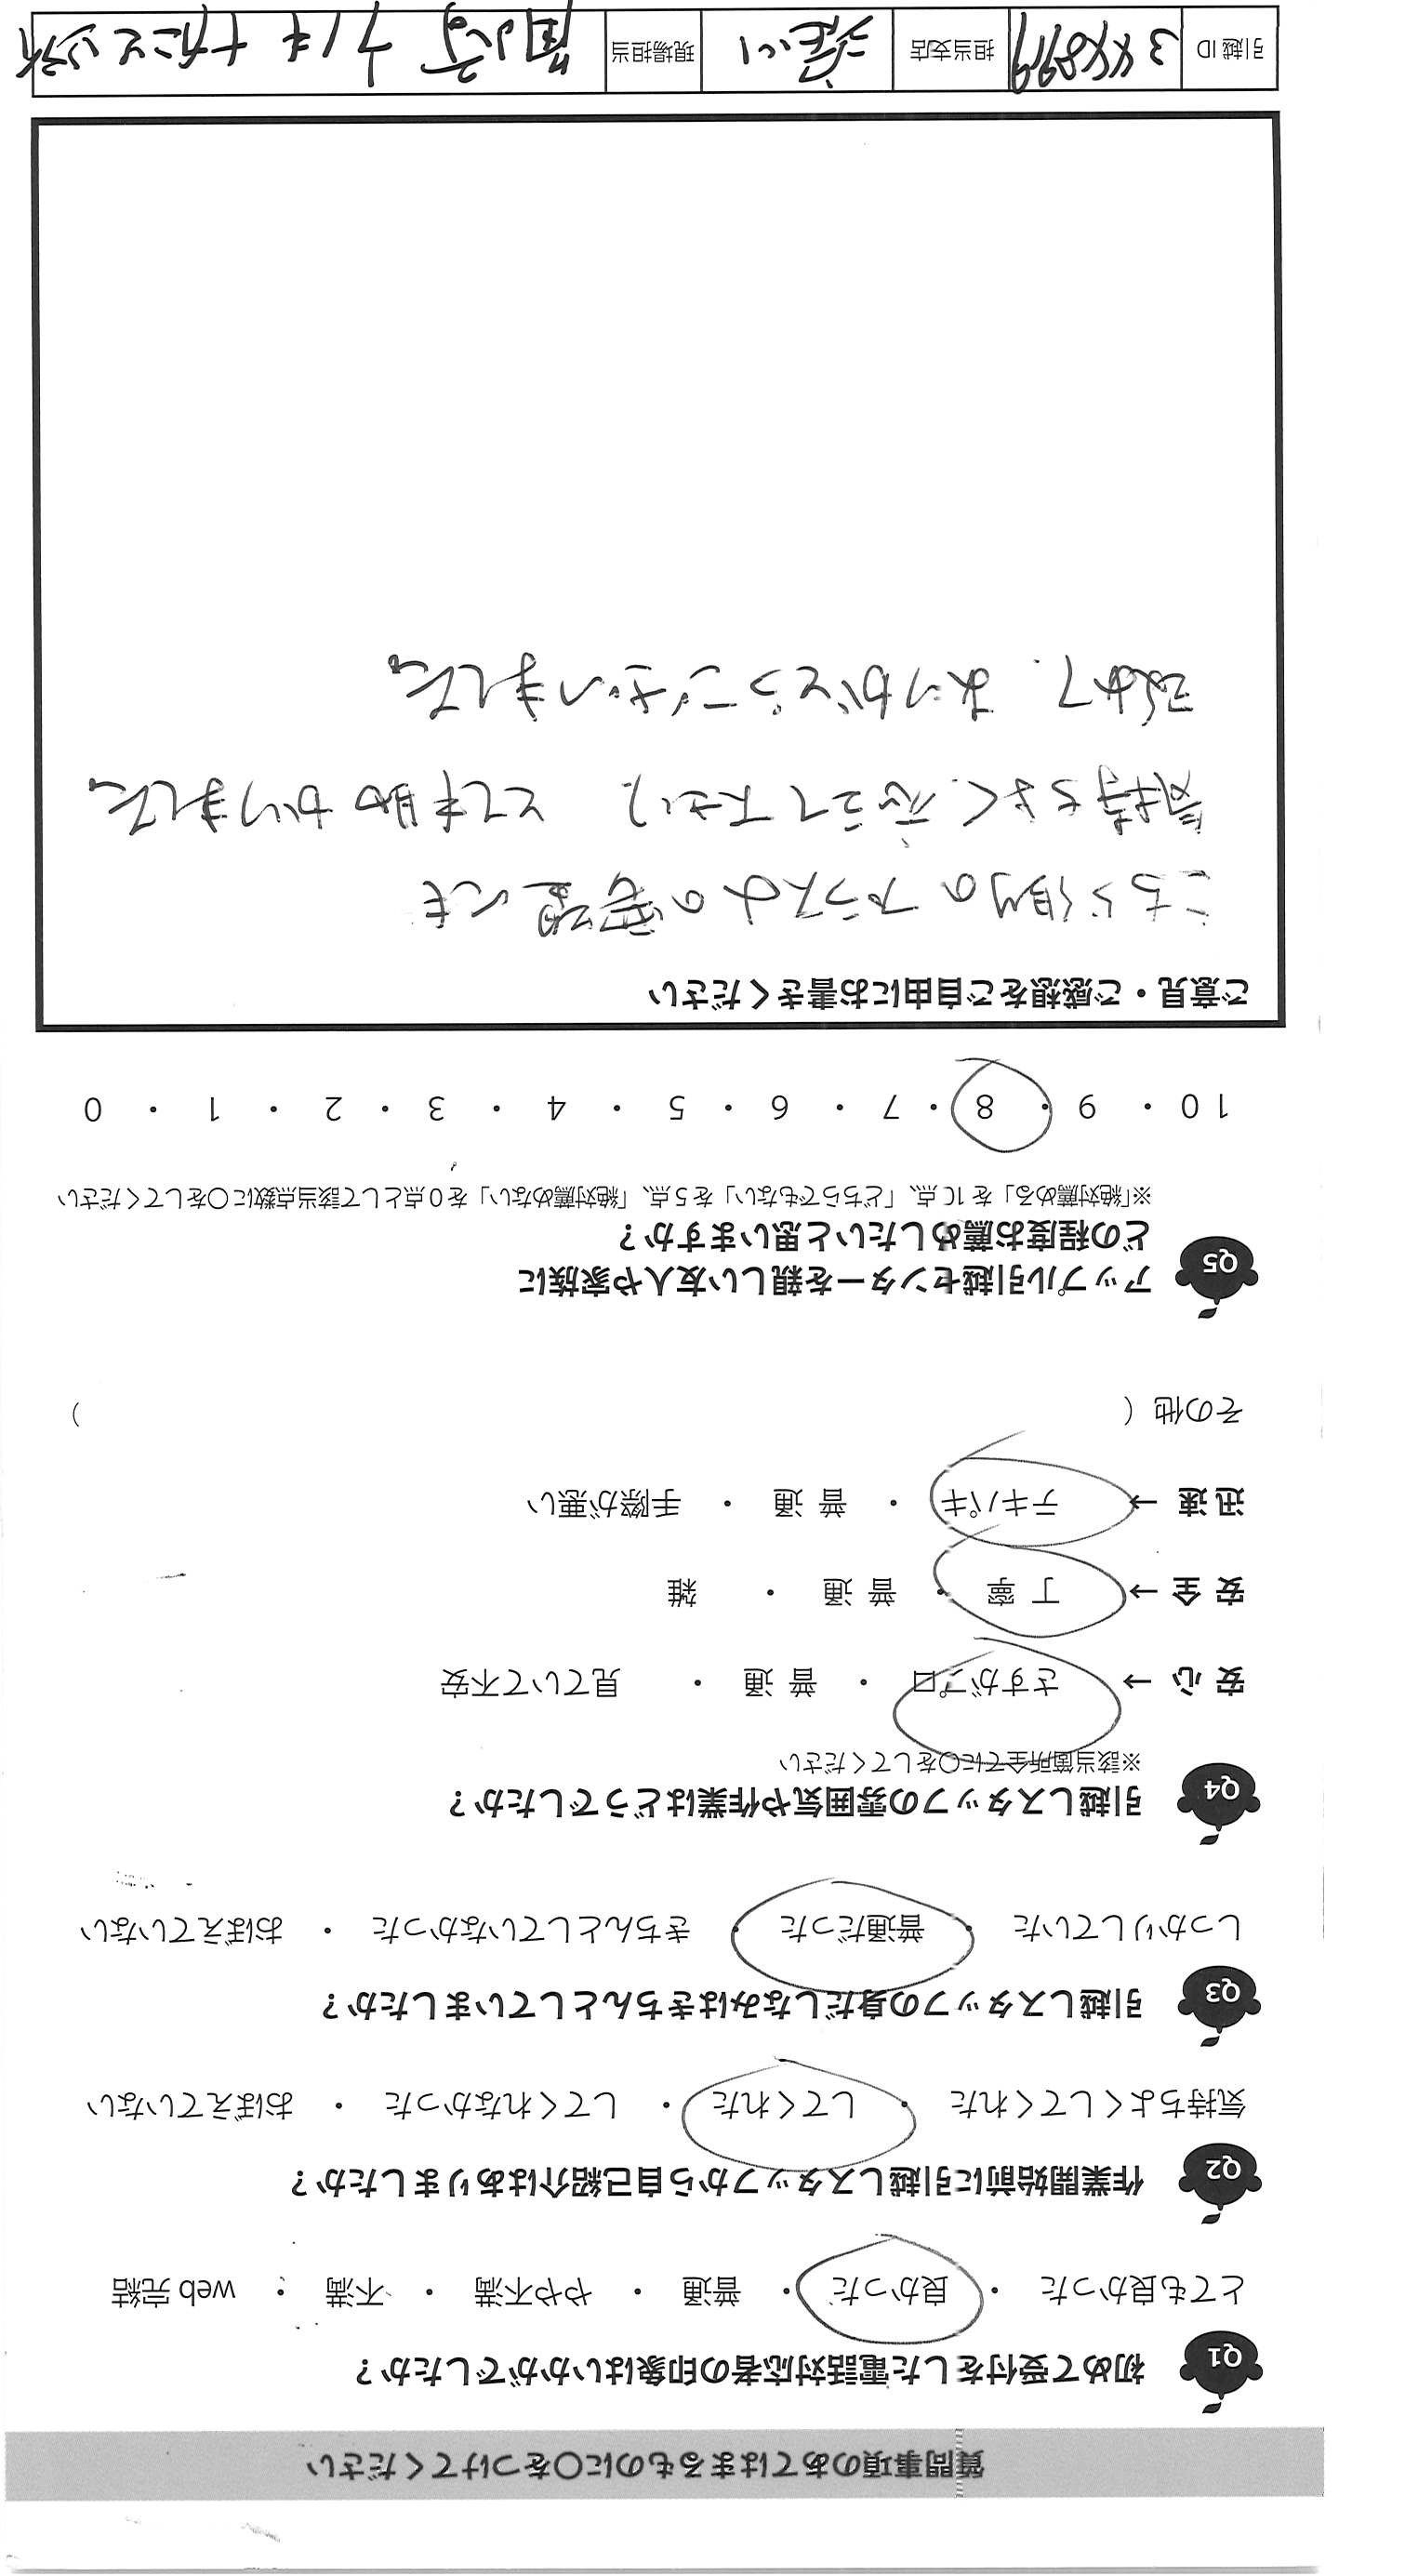 質問事項のあてはまるものに〇をつけてください
Q1 初めて受付をした電話対応者の印象はいかがでしたか？
とても良かった ・ 良かった ・ 普通 ・ やや不満 ・ 不満 ・ web 完結
Q2 作業開始前に引越しスタッフから自己紹介はありましたか？
気持ちよくしてくれた ・ してくれた ・ してくれなかった ・ おぼえていない
Q3 引越しスタッフの身だしなみはきちんとしていましたか？
しっかりしていた ・ 普通だった ・ きちんとしていなかった ・ おぼえていない
Q4 引越しスタッフの雰囲気や作業はどうでしたか？
※該当箇所全てに〇をしてください
安 心 → さすがプロ ・ 普 通 ・ 見ていて不安
安 全 → 丁 寧 ・ 普 通 ・ 雑
迅 速 → テキパキ ・ 普 通 ・ 手際が悪い
その他（ ）
Q5 アップル引越センターを親しい友人や家族に
どの程度お薦めしたいと思いますか？
※「絶対薦める」を10点、「どちらでもない」を5点、「絶対薦めない」を0点として該当点数に〇をしてください
10 ・ 9 ・ 8 ・ 7 ・ 6 ・ 5 ・ 4 ・ 3 ・ 2 ・ 1 ・ 0
ご意見・ご感想をご自由にお書きください
こちら側のプラスαの要望にも
気持ちよく応えて下さり とても助かりました。
改めて、ありがとうございました。
引越ID 担当支店 現場担当